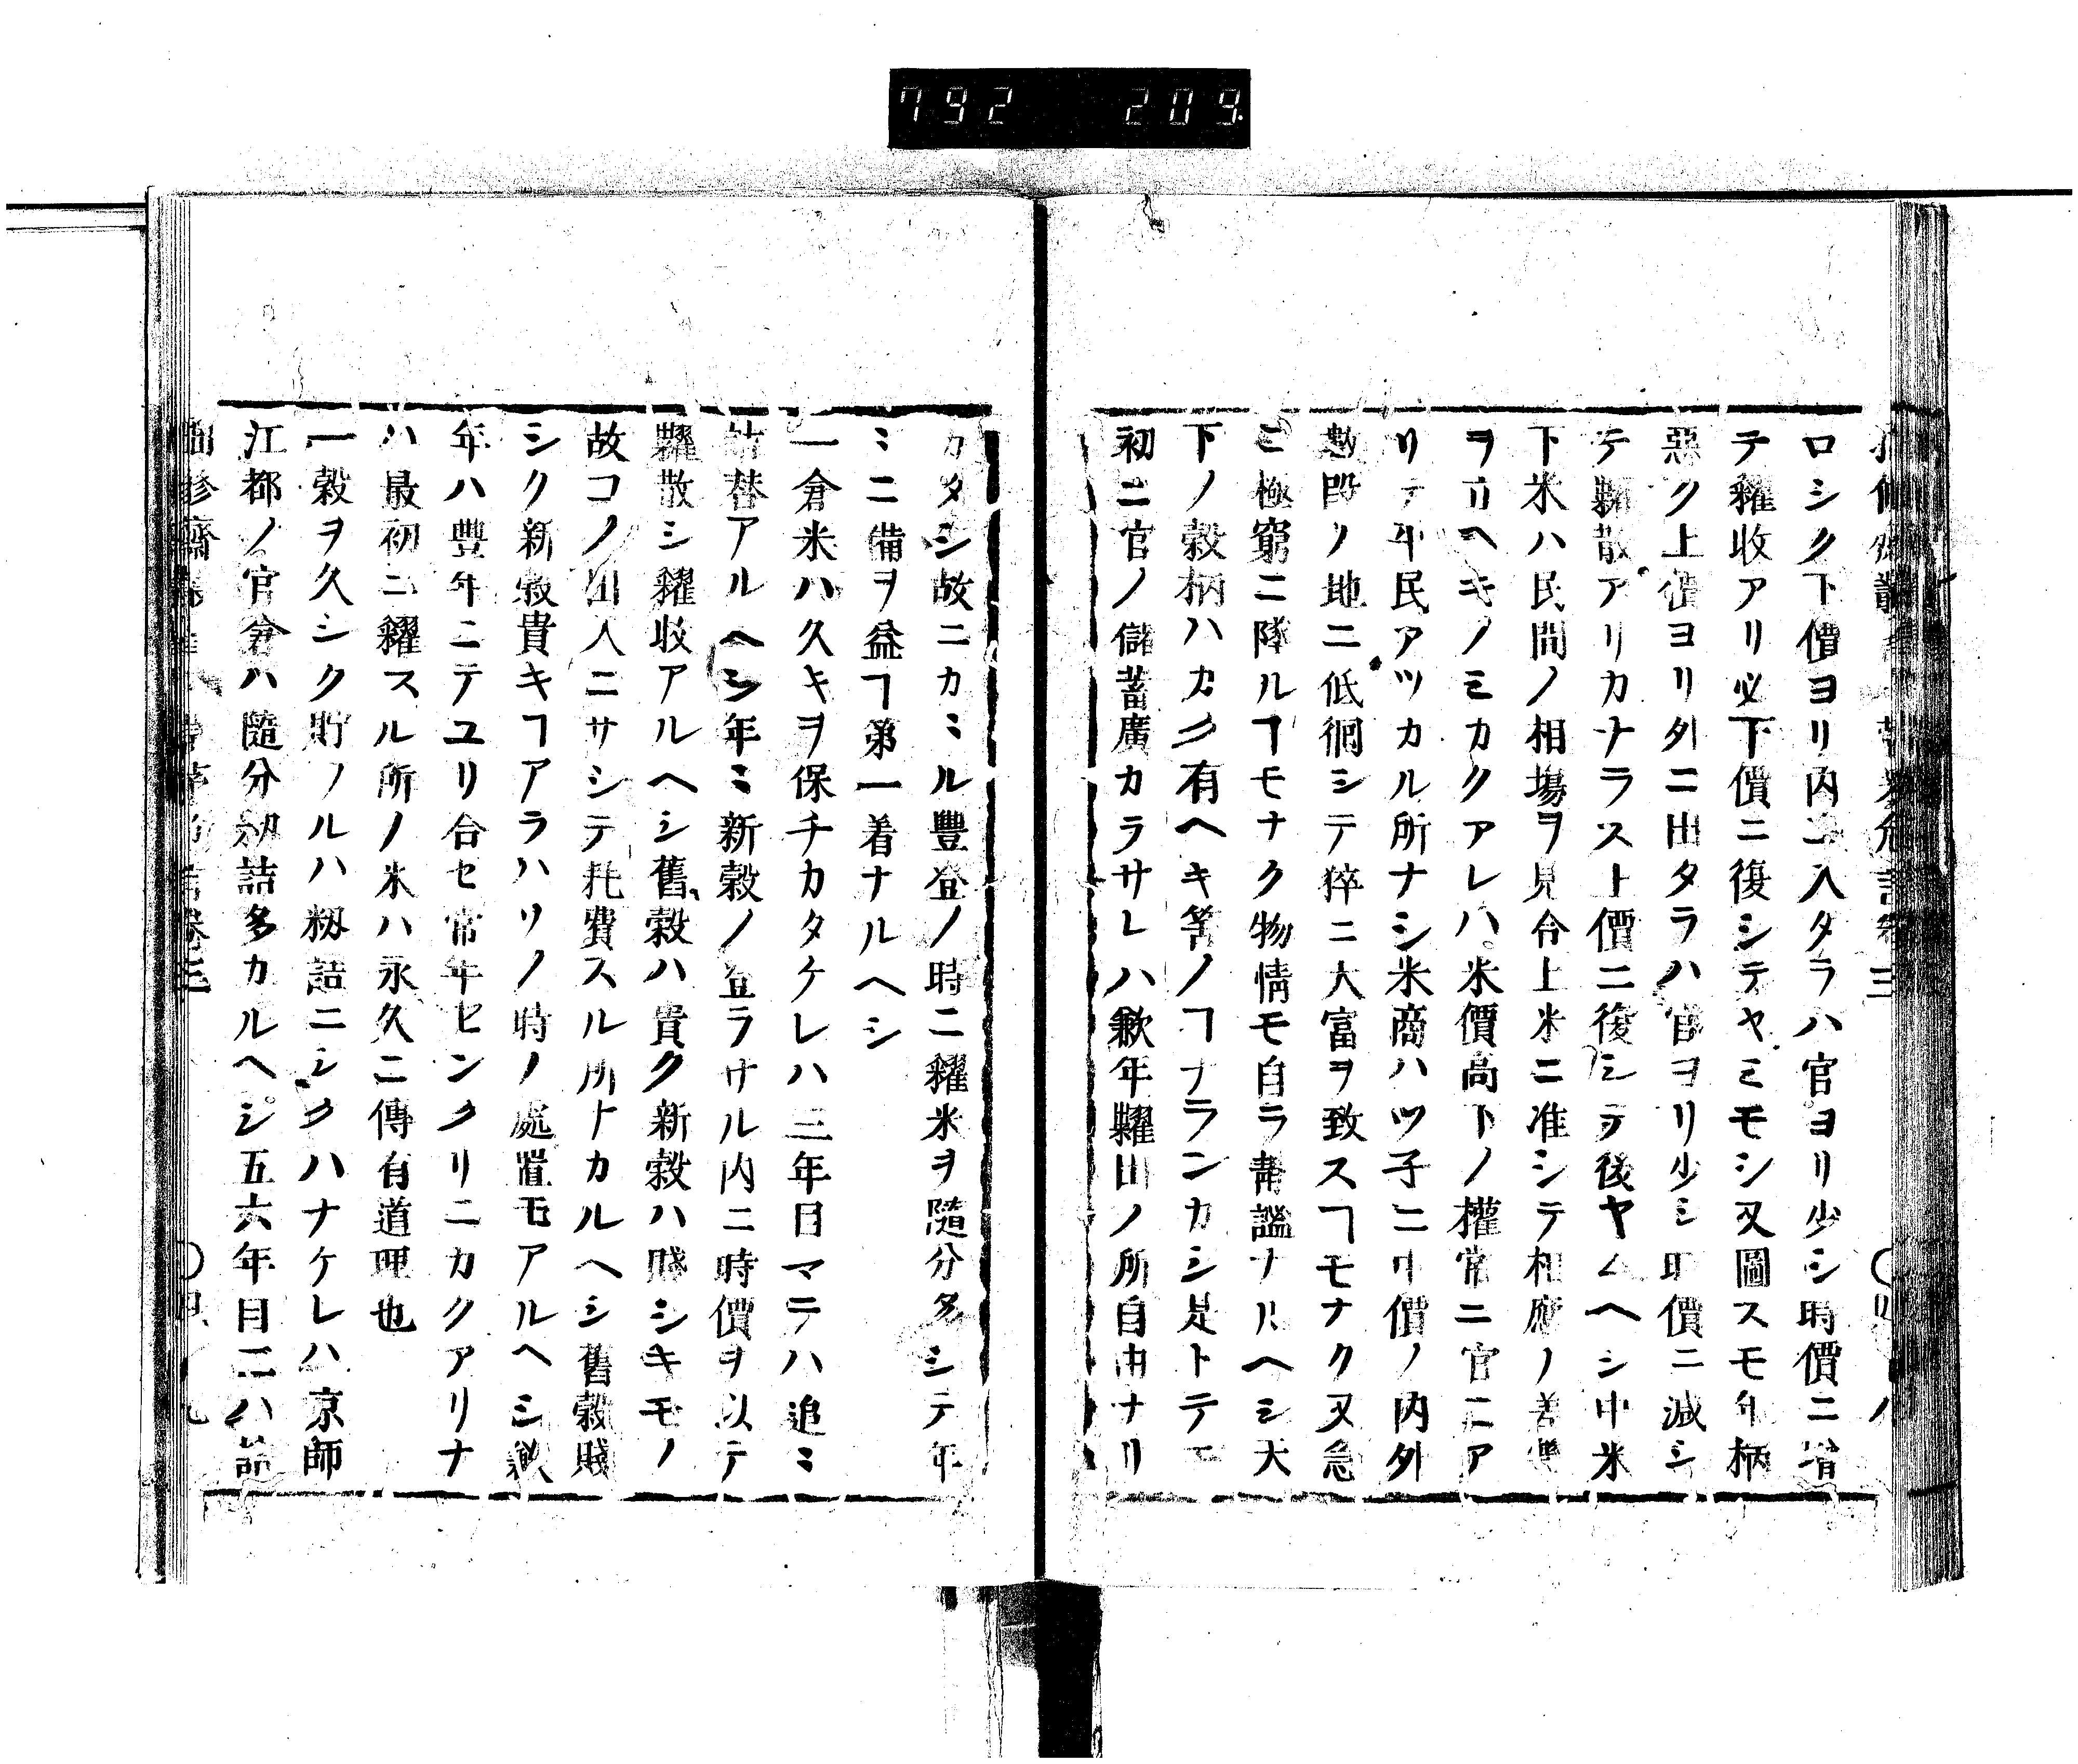 792 209
ロシク下價ヨリ内ニ入タラハ官ヨリ少シ時價ニ増
テ糴收アリ必下價ニ復シテヤミモシ又圖スモ年柄
惡ク上價ヨリ外ニ出タラハ官ヨリ少シ時價ニ減シ
テ糶散アリカナラス上價ニ復シテ後ヤムヘシ中米
下米ハ民間ノ相場ヲ見合上米ニ准シテ相應ノ差等
ヲ立ヘキノミカクアレハ米價高下ノ權常ニ官ニア
リテ平民アツカル所ナシ米商ハツ子ニ中價ノ内外
數段ノ地ニ低徊シテ猝ニ大富ヲ致スヿモナク又急
ニ極窮ニ墜ルヿモナク物情モ自ラ靜謐ナルヘシ天
下ノ穀柄ハカク有ヘキ筈ノヿナランカシ是トテモ
初ニ官ノ儲蓄廣カラサレハ歉年糶出ノ所自由ナリ
カタシ故ニカミル豐登ノ時ニ糴米ヲ隨分多シテ年
ミニ備ヲ益ヿ第一着ナルヘシ
一倉米ハ久キヲ保チカタケレハ三年目マニテハ追ミ
詰替アルヘシ年ミ新穀ノ登ラサル内ニ時價ヲ以テ
糶散シ糴收アルヘシ舊穀ハ貴ク新穀ハ賤シキモノ
故コノ出入ニサシテ耗費スル所ナカルヘシ舊穀賤
シク新穀貴キヿアラハソノ時ノ處置モアルヘシ歉
年ハ豐年ニテユリ合セ常年ヒンクリニカクアリナ
ハ最初ニ糴スル所ノ米ハ永久ニ傳有道理也
一穀ヲ久シク貯ノルハ籾詰ニシクハナケレハ京師
江都ノ官倉ハ隨分籾詰多カルヘシ五六年目ニハ詰